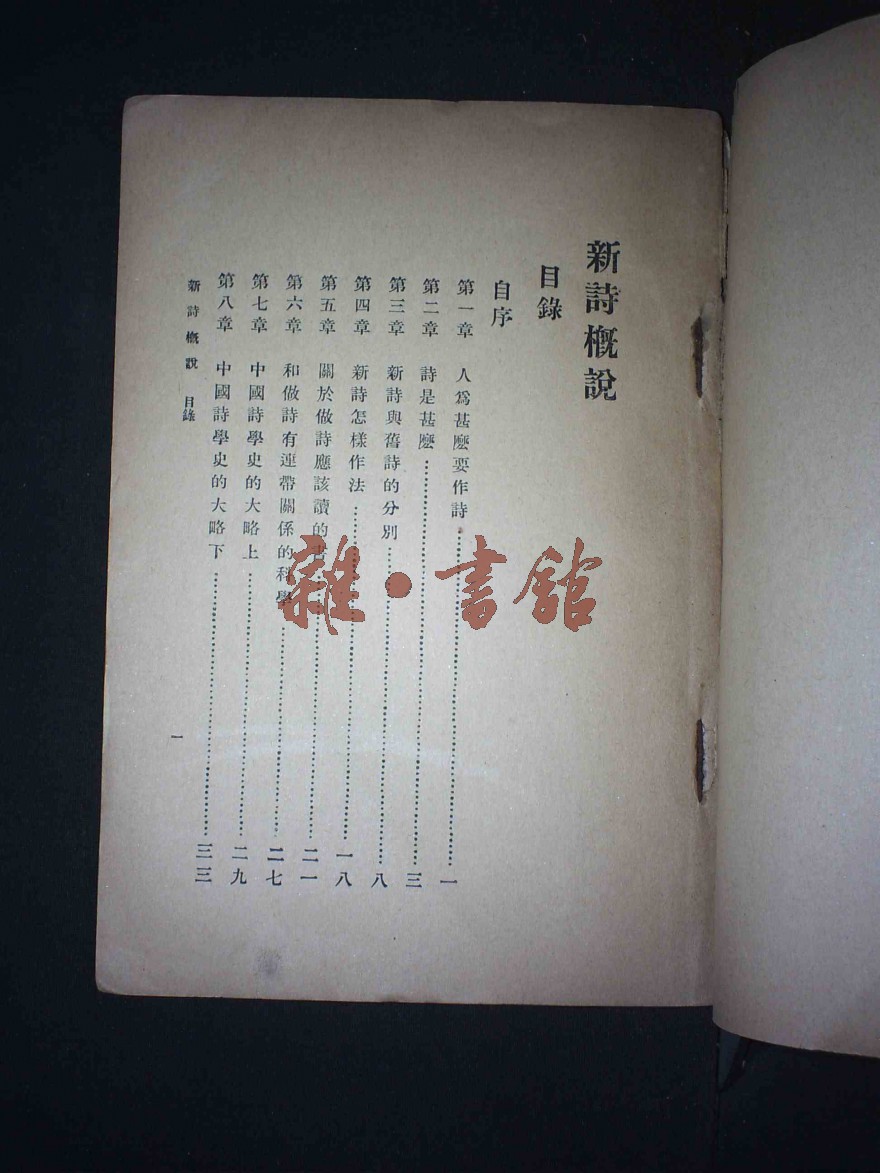 新詩槪說
目錄
自序
第一章 人爲甚麽要作詩……一
第二章 詩是甚麽……三
第三章 新詩與舊詩的分別……八
第四章 新詩怎樣作法……一八
第五章 關於做詩應該讀的書……二一
第六章 和做詩有連帶關係的科學……二七
第七章 中國詩學史的大略上……二九
第八章 中國詩學史的大略下……三三
新詩槪說 目錄
一
雜·書館